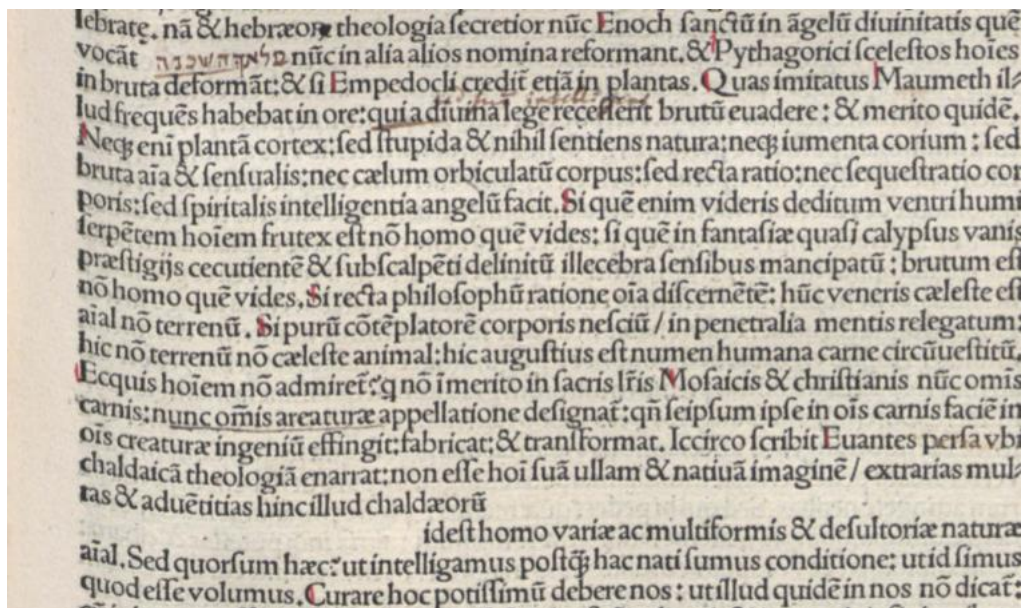 lebrate. nā & hebræoꝝ theologia ſecretior nūc Enoch ſanctū in āgelū diuinitatis quē
vocāt מלאך השכינה nūc in alia alios nomina reformant. & Pythagorici ſceleſtos hoīes
in bruta deformāt: & ſi Empedocli credit̄ etiā in plantas. Quas imitatus Maumeth il⸗
lud frequēs habebat in ore: qui a diuina lege receſſerit brutū euadere: & merito quidē.
Neqꝫ enī plantā cortex: ſed ſtupida & nihil ſentiens natura: neqꝫ iumenta corium: ſed
bruta aīa & ſenſualis: nec cælum orbiculatū corpus: ſed recta ratio: nec ſequeſtratio cor
poris: ſed ſpiritalis intelligentia angelū facit. Si quē enim videris deditum ventri humi
ſerpētem hoīem frutex eſt nō homo quē vides: ſi quē in fantaſiæ quaſi calypſus vanis
præſtigijs cecutientē & ſubſcalpēti delinitū illecebra ſenſibus mancipatū: brutum eſt
nō homo quē vides. Si recta philoſophū ratione oīa diſcernētē: hūc veneris cæleſte eſt
aīal nō terrenū. Si purū cōtēplatorē corporis neſciū / in penetralia mentis relegatum:
hic nō terrenū nō cæleſte animal: hic auguſtius eſt numen humana carne circūueſtitū.
Ecquis hoīem nō admiret̄: q̄ nō īmerito in ſacris lr̄is Moſaicis & chriſtianis nūc omīs
carnis: nunc om̄is areaturæ appellatione deſignat̄: qn̄ ſeipſum ipſe in oīs carnis faciē in
oīs creaturæ ingeniū effingit: fabricat: & tranſformat. Iccirco ſcribit Euantes perſa vbi
chaldaicā theologiā enarrat: non eſſe hoī ſuā ullam & natiuā imaginē / extrarias mul⸗
tas & aduētitias hinc illud chaldæorū
ideſt homo variæ ac multiformis & deſultoriæ naturæ
aīal. Sed quorſum hæc? ut intelligamus poſtq̄ꝫ hac nati ſumus conditione: ut id ſimus
quod eſſe volumus. Curare hoc potiſſimū debere nos: ut illud quidē in nos nō dicat̄: